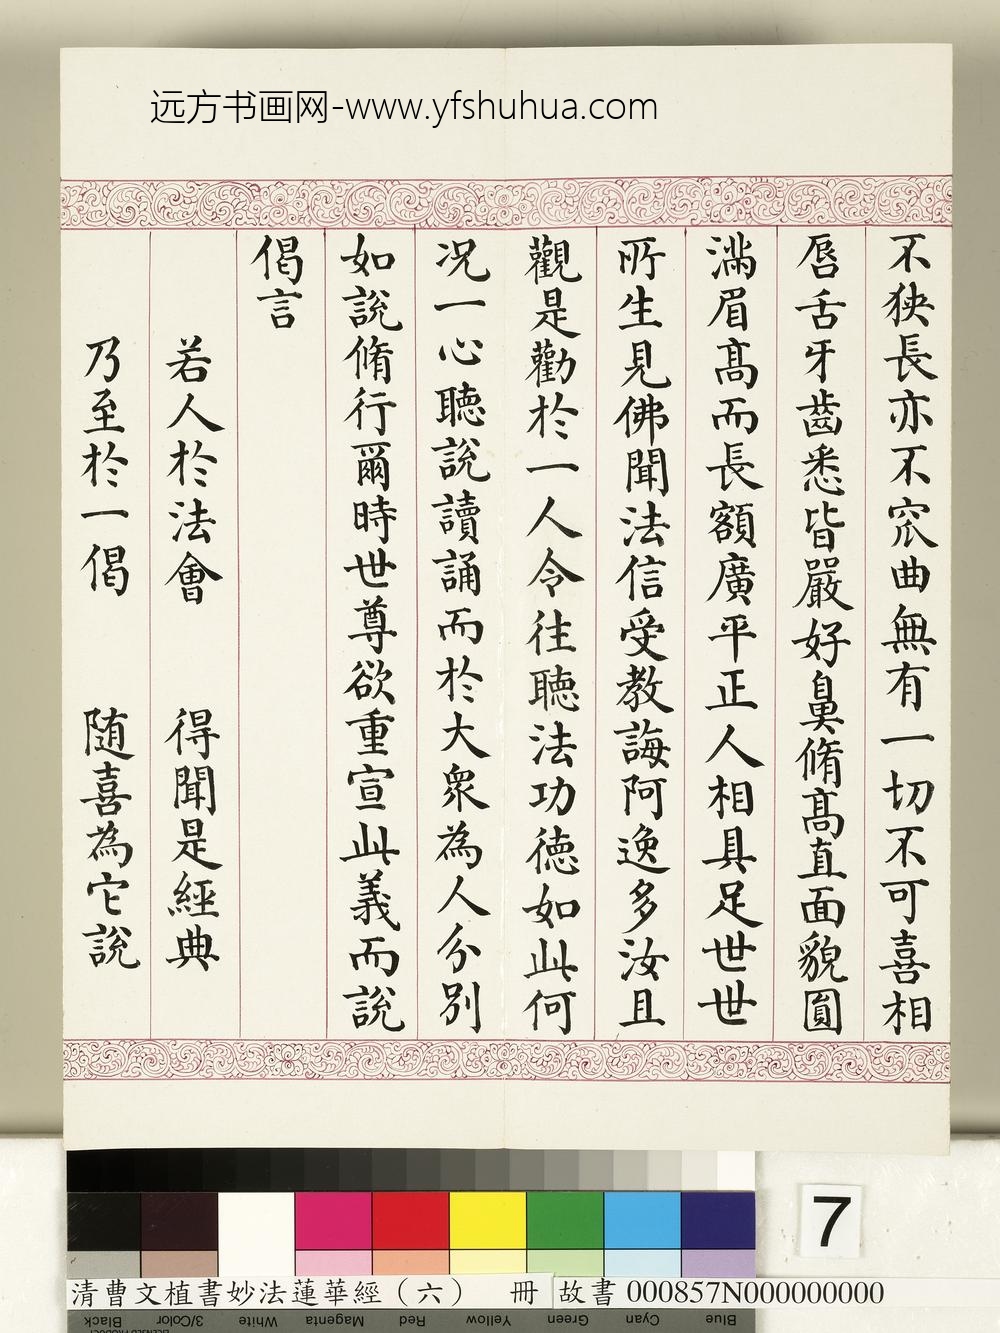 远方书画网-www.yfshuhua.com
不狹長亦不窊曲無有一切不可喜相
唇舌牙齒悉皆嚴好鼻脩高直面貌圓
滿眉高而長額廣平正人相具足世世
所生見佛聞法信受教誨阿逸多汝且
觀是勸於一人令往聽法功德如此何
況一心聽說讀誦而於大眾為人分別
如說脩行爾時世尊欲重宣此義而說
偈言
若人於法會 得聞是經典
乃至於一偈 随喜為它說
7
清曹文植書妙法蓮華經（六） 冊 故書 000857N000000000
Black 3/Color White Magenta Red Yellow Green Cyan Blue